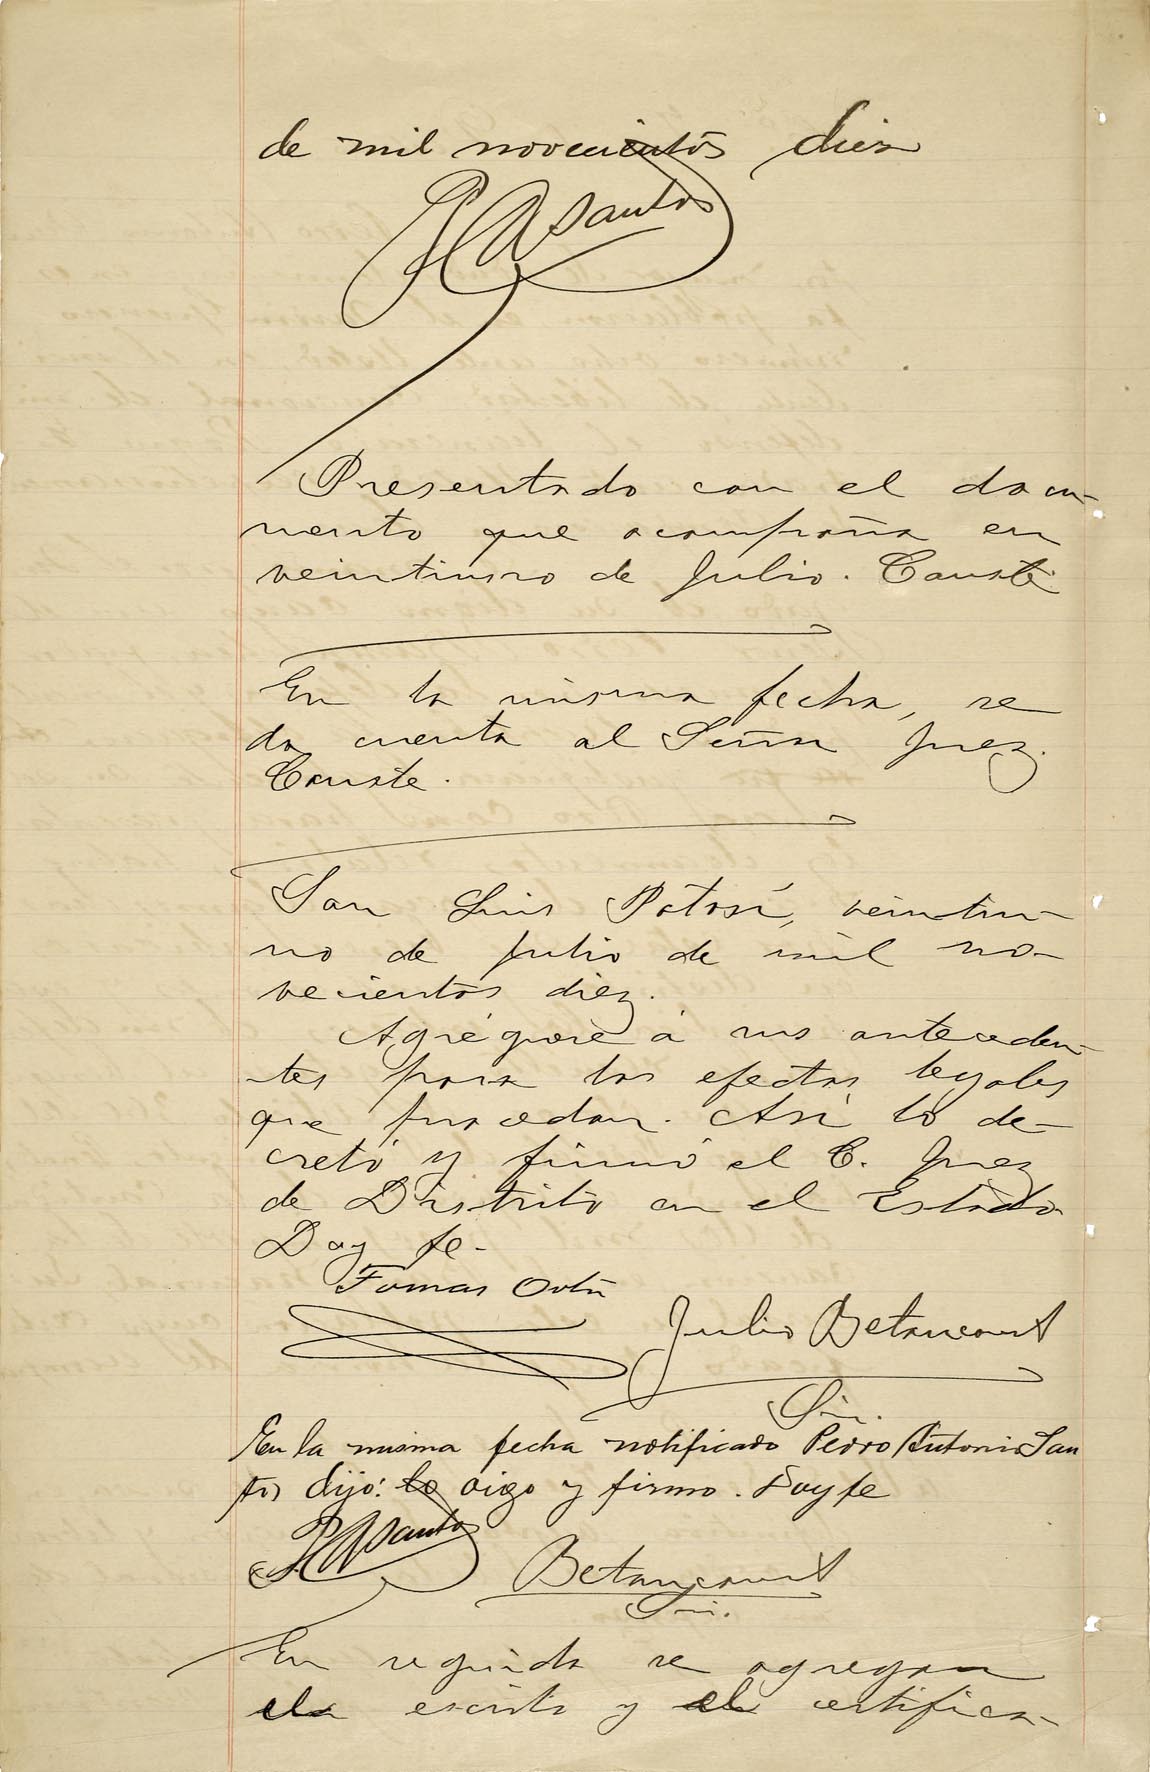 de mil novecientos diez
P A Santos
Presentado con el docu-
mento que acompaña en
veintiuno de Julio. Conste
En la misma fecha, se
da cuenta al Señor Juez.
Conste.
San Luis Potosí, veintiu-
no de Julio de mil no-
vecientos diez.
Agréguese á sus anteceden-
tes para los efectos legales
que procedan. Así lo de-
cretó y firmó el C. Juez
de Distrito en el Estado
Doy fe-
Tomas Ortiz
Julio Betancourt
Srio.
En la misma fecha notificado Pedro Antonio San
tos dijo: lo oigo y firmo. Doy fe
P A Santos
Betancourt
Srio.
En seguida se agregan
el escrito y el certifica-